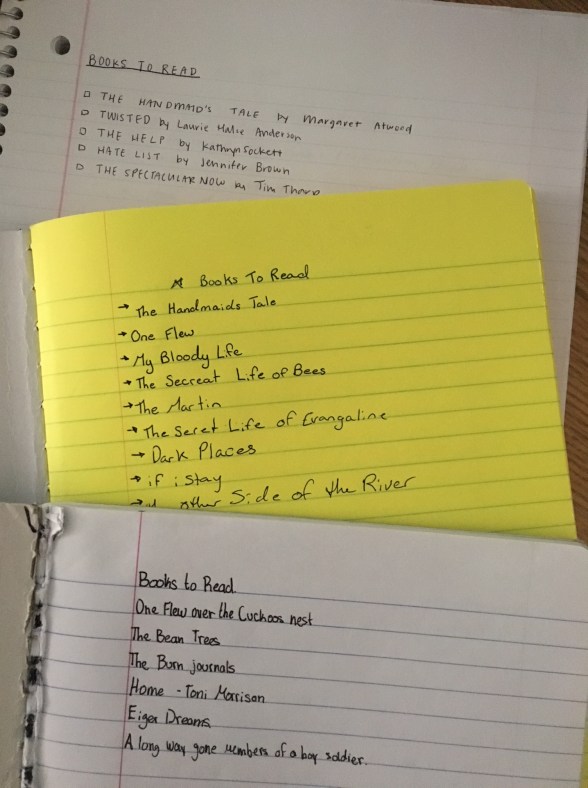 BOOKS TO READ
THE HANDMAID'S TALE by Margaret Atwood
TWISTED by Laurie Halse Anderson
THE HELP by Kathryn Sockett
HATE LIST by Jennifer Brown
THE SPECTACULAR NOW Tim Tharp
Books To Read
→ The Handmaids Tale
→ One Flew
→ My Bloody Life
→ The Secreat Life of Bees
→ The Martin
→ The Seret Life of Evangaline
→ Dark Places
→ if i Stay
→ other Side of the River
Books to Read
One Flew over the Cuckoos nest
The Bean Trees
The Burn journals
Home - Toni Morrison
Eiger Dreams
A long way gone membera of a boy soldier.